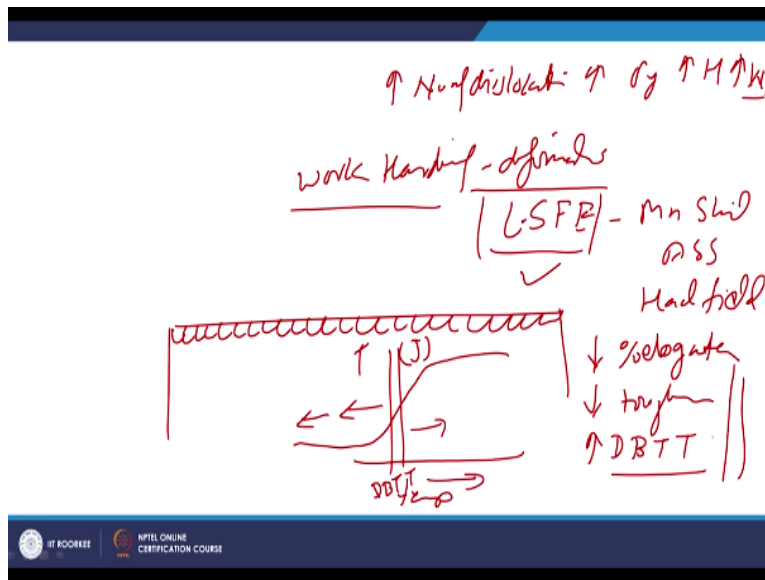 ↑ No of dislocati ↑ σy ↑ H ↑ W
Work Harding - deformatio
L.SFE - Mn Steel
ASS
Hadfield
↑ (J)
↓ % elogate
↓ tough
↑ DBTT
DBTT
Temp
IIT ROORKEE
NPTEL ONLINE
CERTIFICATION COURSE